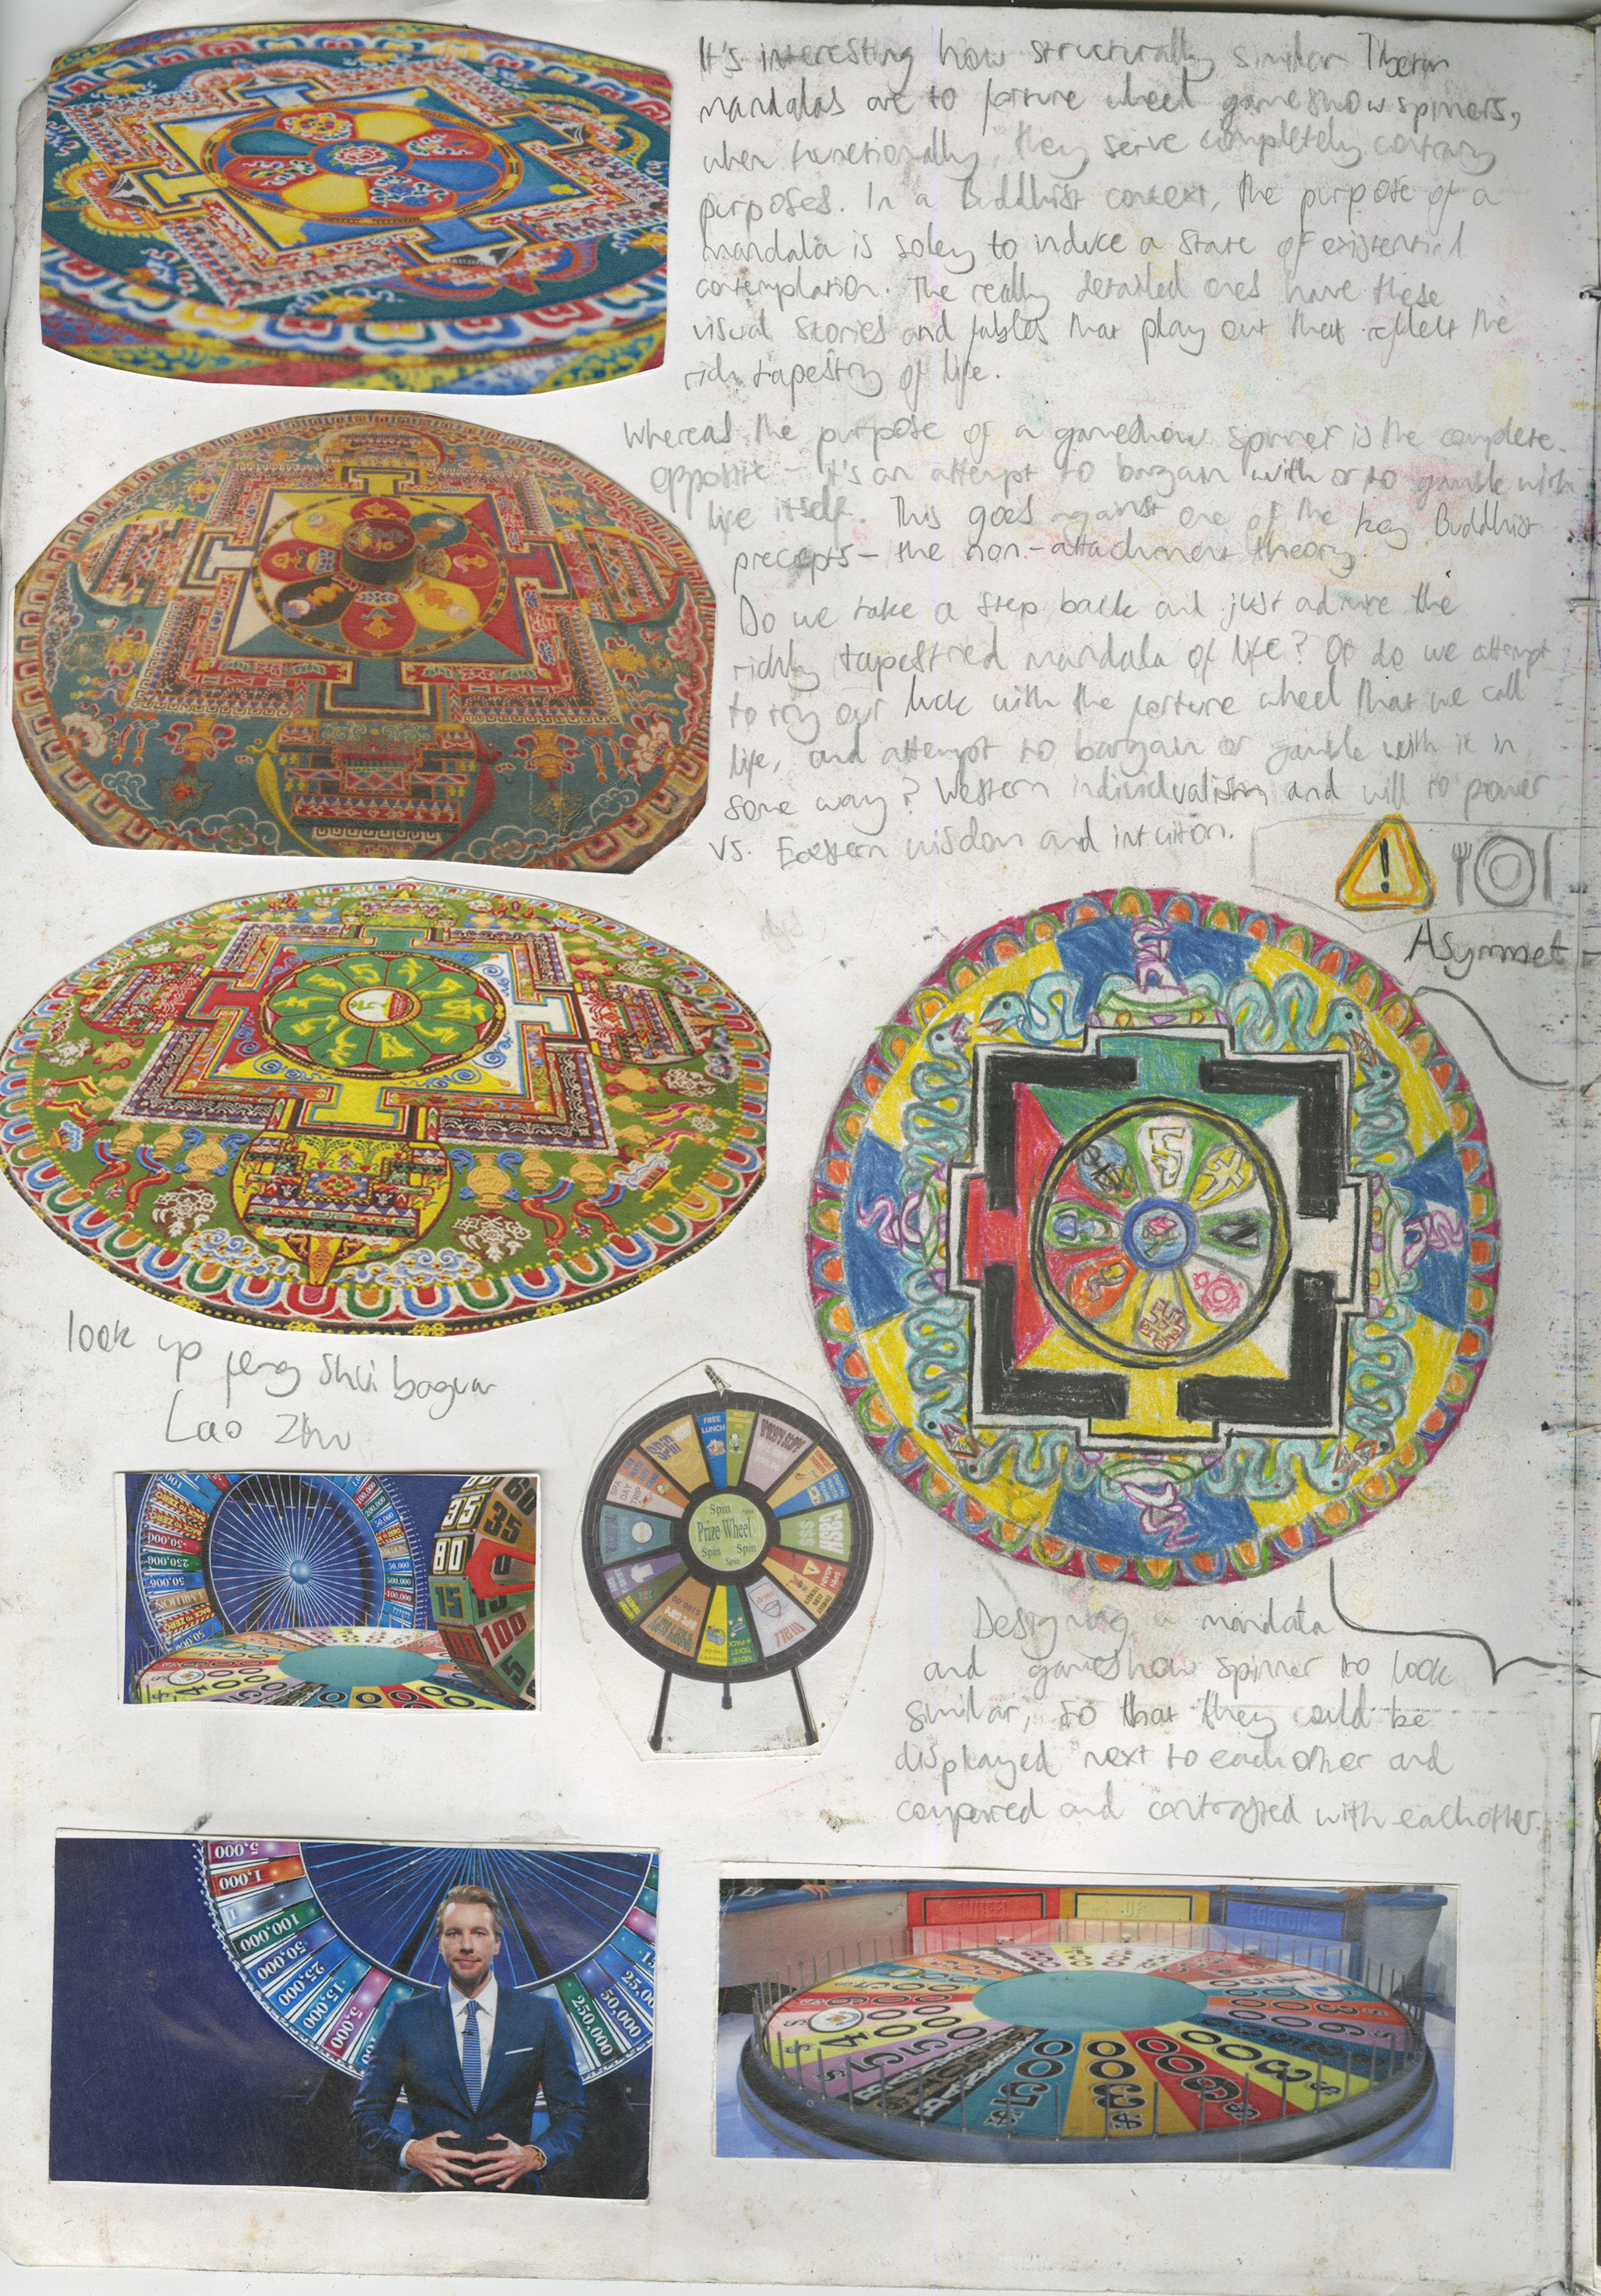 It's interesting how structurally similar Tibetan
mandalas are to fortune wheel gameshow spinners,
when functionally, they serve completely contrary
purposes. In a Buddhist context, the purpose of a
mandala is soley to induce a state of existential
contemplation. The really detailed ones have these
visual stories and fables that play out that reflect the
rich tapestry of life.
Whereas the purpose of a gameshow spinner is the complete
opposite – it's an attempt to bargain with or to gamble with
life itself. This goes against one of the key Buddhist
precepts – the non-attachment theory.
Do we take a step back and just admire the
richly tapestried mandala of life? Or do we attempt
to try our luck with the fortune wheel that we call
life, and attempt to bargain or gamble with it in
some way? Western individualism and will to power
vs. Eastern wisdom and intuition.
Asymmet
look up feng shui bagua
Lao Zhu
Designing a mandala
and gameshow spinner to look
similar, so that they could be
displayed next to eachother and
compared and contrasted with eachother.
FREE
LUNCH
CASH
$$$
SPA
DAY
TRIP
Spin
Prize Wheel
Spin
Spin
Spin
MOVIE
TICKET
4-PACK
BACK TO ZERO
50,000
250,000
50,000
1 MILLION
BACK TO ZERO
50,000
35
80
15
60
35
0
100
5
5,000
1,000
1
100,000
50,000
25,000
15,000
5,000
250,000
50,000
25,00
WHEEL
OF
FORTUNE
$500
$300
$600
$300